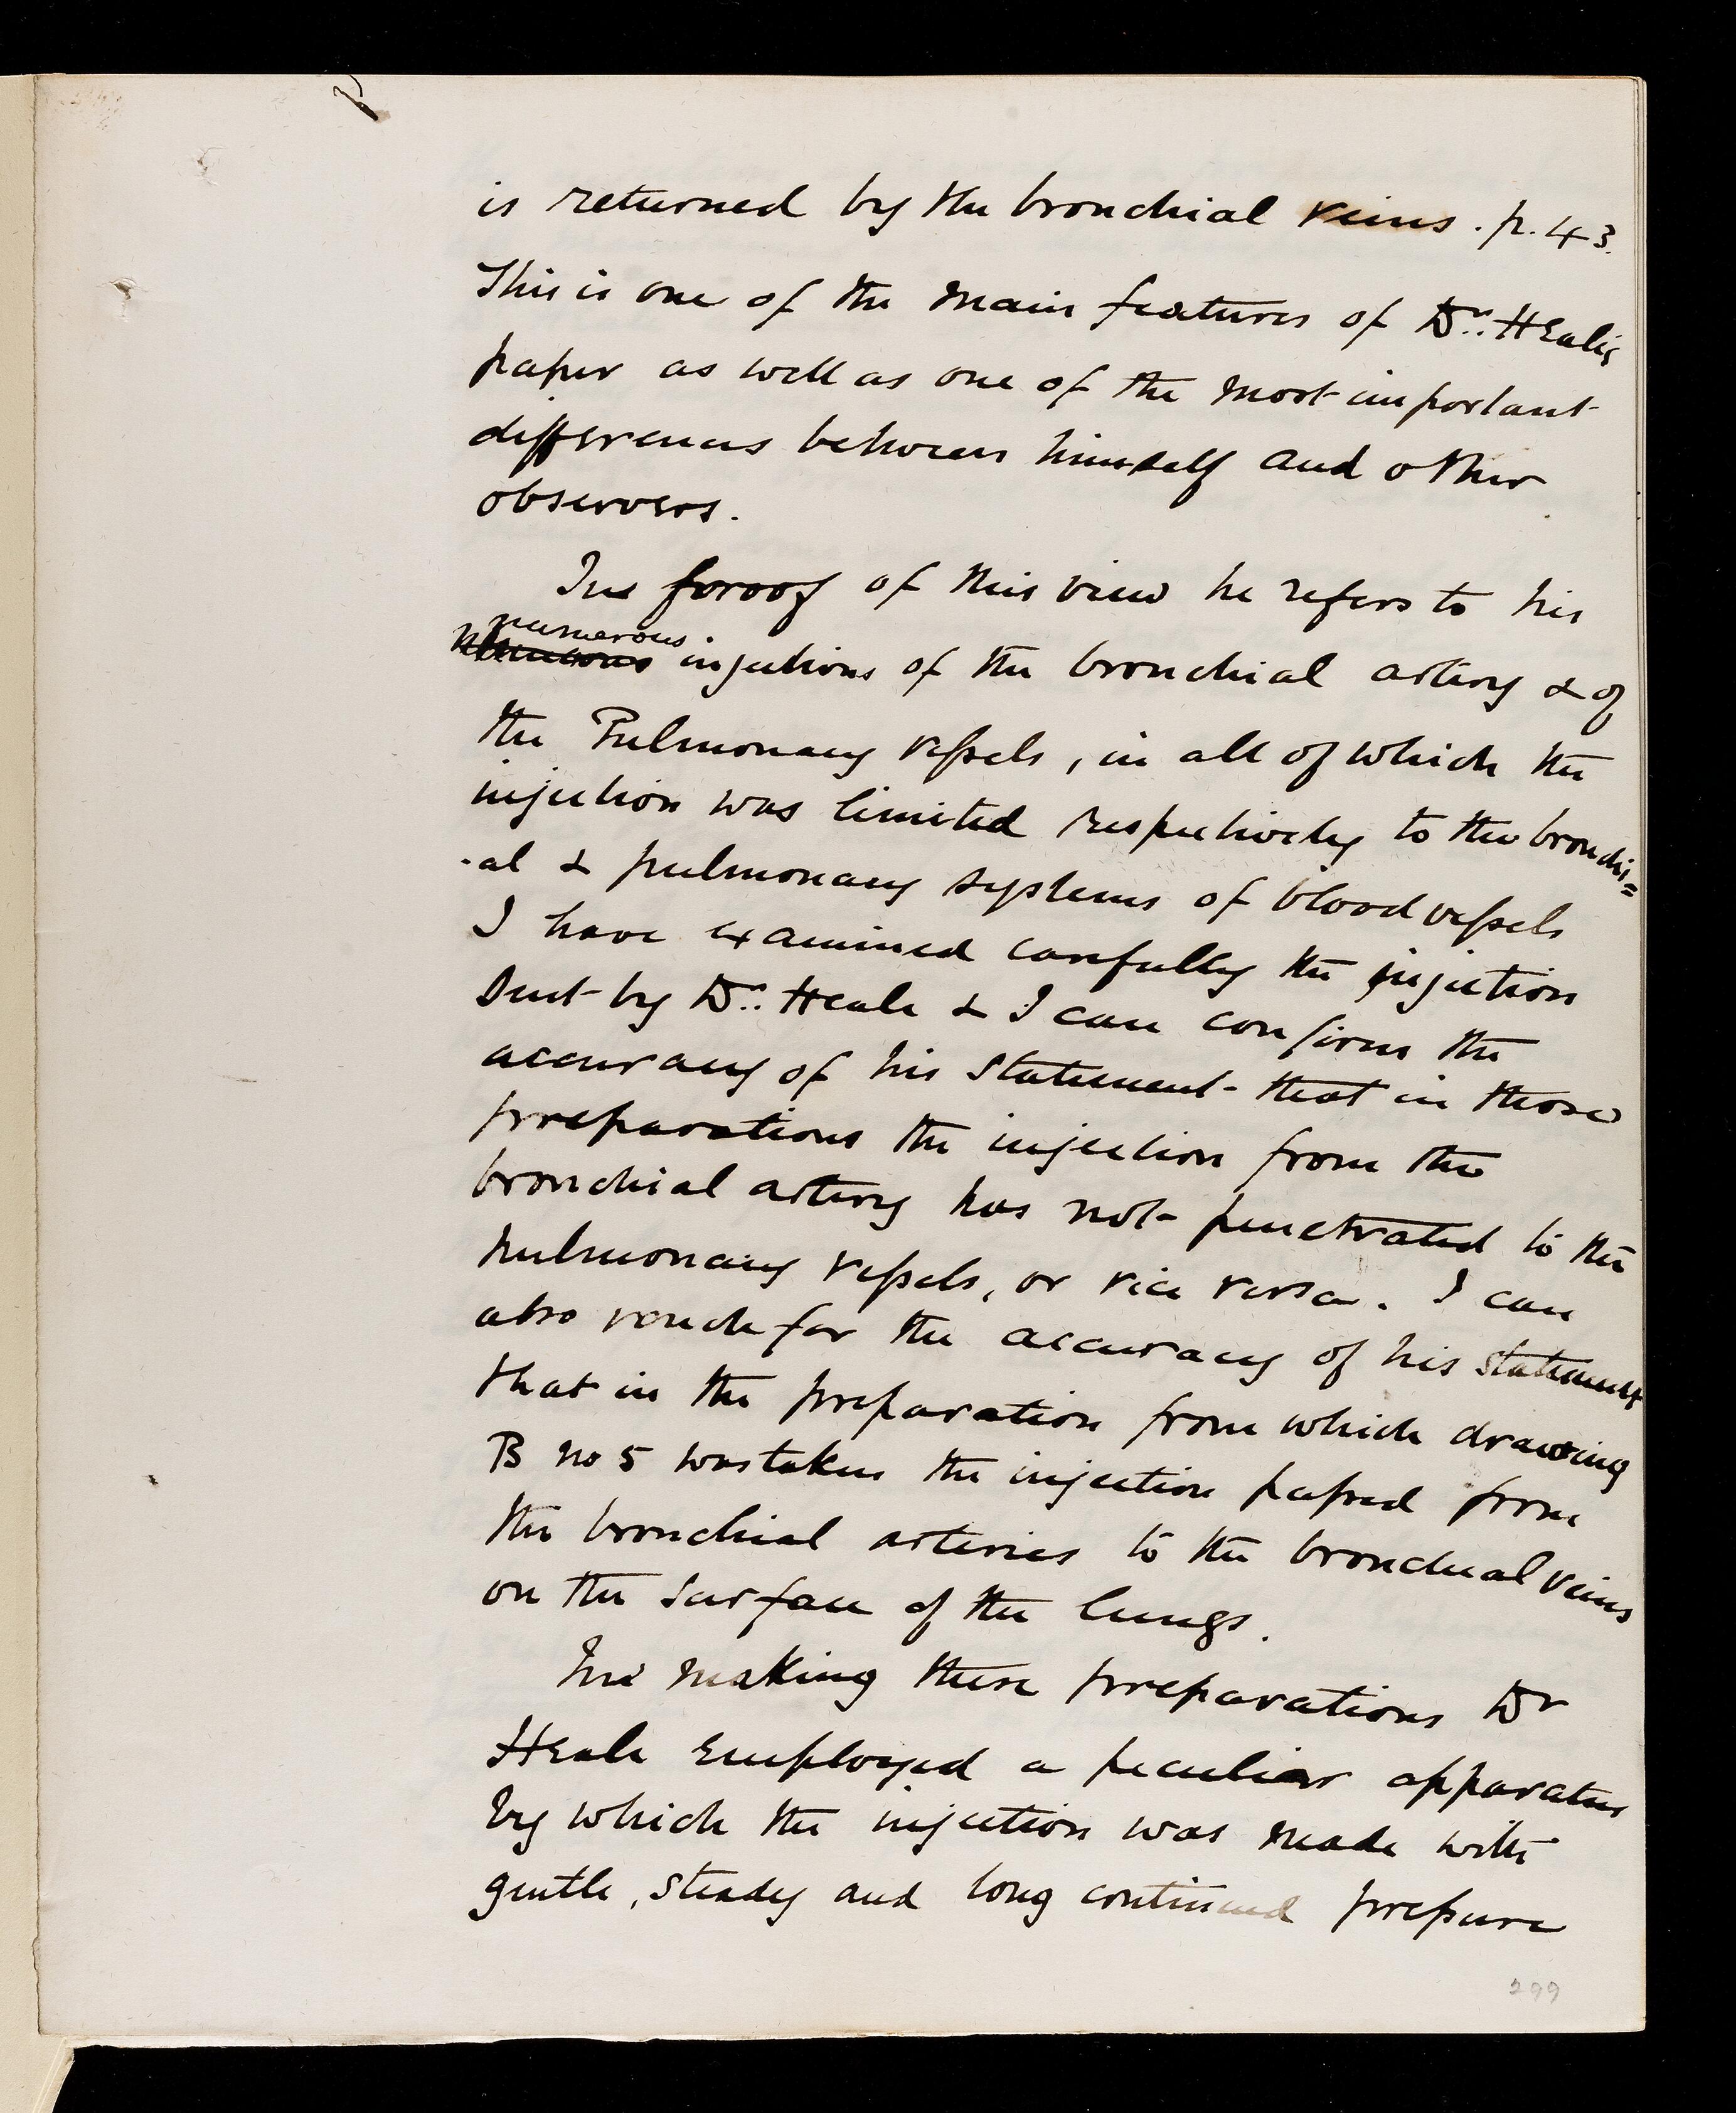 is returned by the bronchial veins. p. 43.
This is one of the main features of Dr. Heale's
paper as well as one of the most important
differences between himself and other
observers.
In proof of this view he refers to his
numerous
injections of the bronchial artery & of
the Pulmonary vessels, in all of which the
injection was limited respectively to the bronchi=
-al & pulmonary systems of blood vessels
I have examined carefully the injection
sent by Dr. Heale & I can confirm the
accuracy of his statement that in those
preparations the injection from the
bronchial artery has not penetrated to the
pulmonary vessels, or vice versa. I can
also vouch for the accuracy of his statement
that in the preparation from which drawing
B no 5 was taken the injection passed from
the bronchial arteries to the bronchial veins
on the surface of the lungs.
In making these preparations Dr
Heale employed a peculiar apparatus
by which the injection was made with
gentle, steady and long continued pressure
299